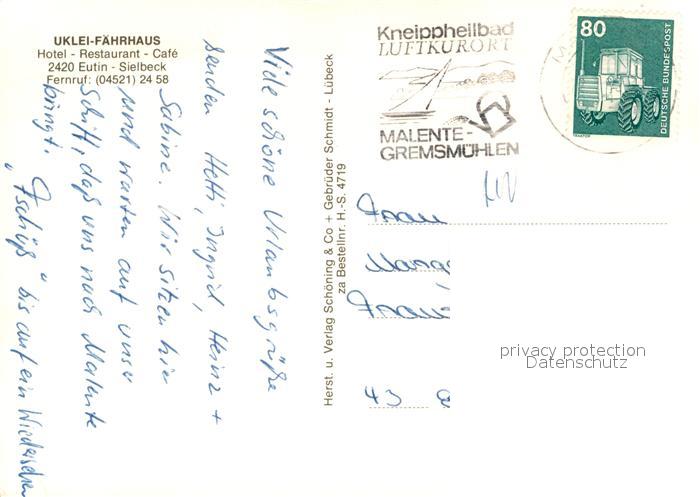 UKLEI-FÄHRHAUS
Hotel - Restaurant - Café
2420 Eutin - Sielbeck
Fernruf: (04521) 24 58
Viele schöne Urlaubsgrüße
senden Hetti, Ingrid, Heinz +
Sabine. Wir sitzen hier
und warten auf unser
Schiff, daß uns nach Malente
bringt.
"Tschüß" bis auf ein Wiedersehen
Herst. u. Verlag Schöning & Co + Gebrüder Schmidt - Lübeck
za Bestellnr. H.-S. 4719
Kneippheilbad
LUFTKURORT
MALENTE-
GREMSMÜHLEN
80
DEUTSCHE BUNDESPOST
TRAKTOR
Frau
43
privacy protection
Datenschutz